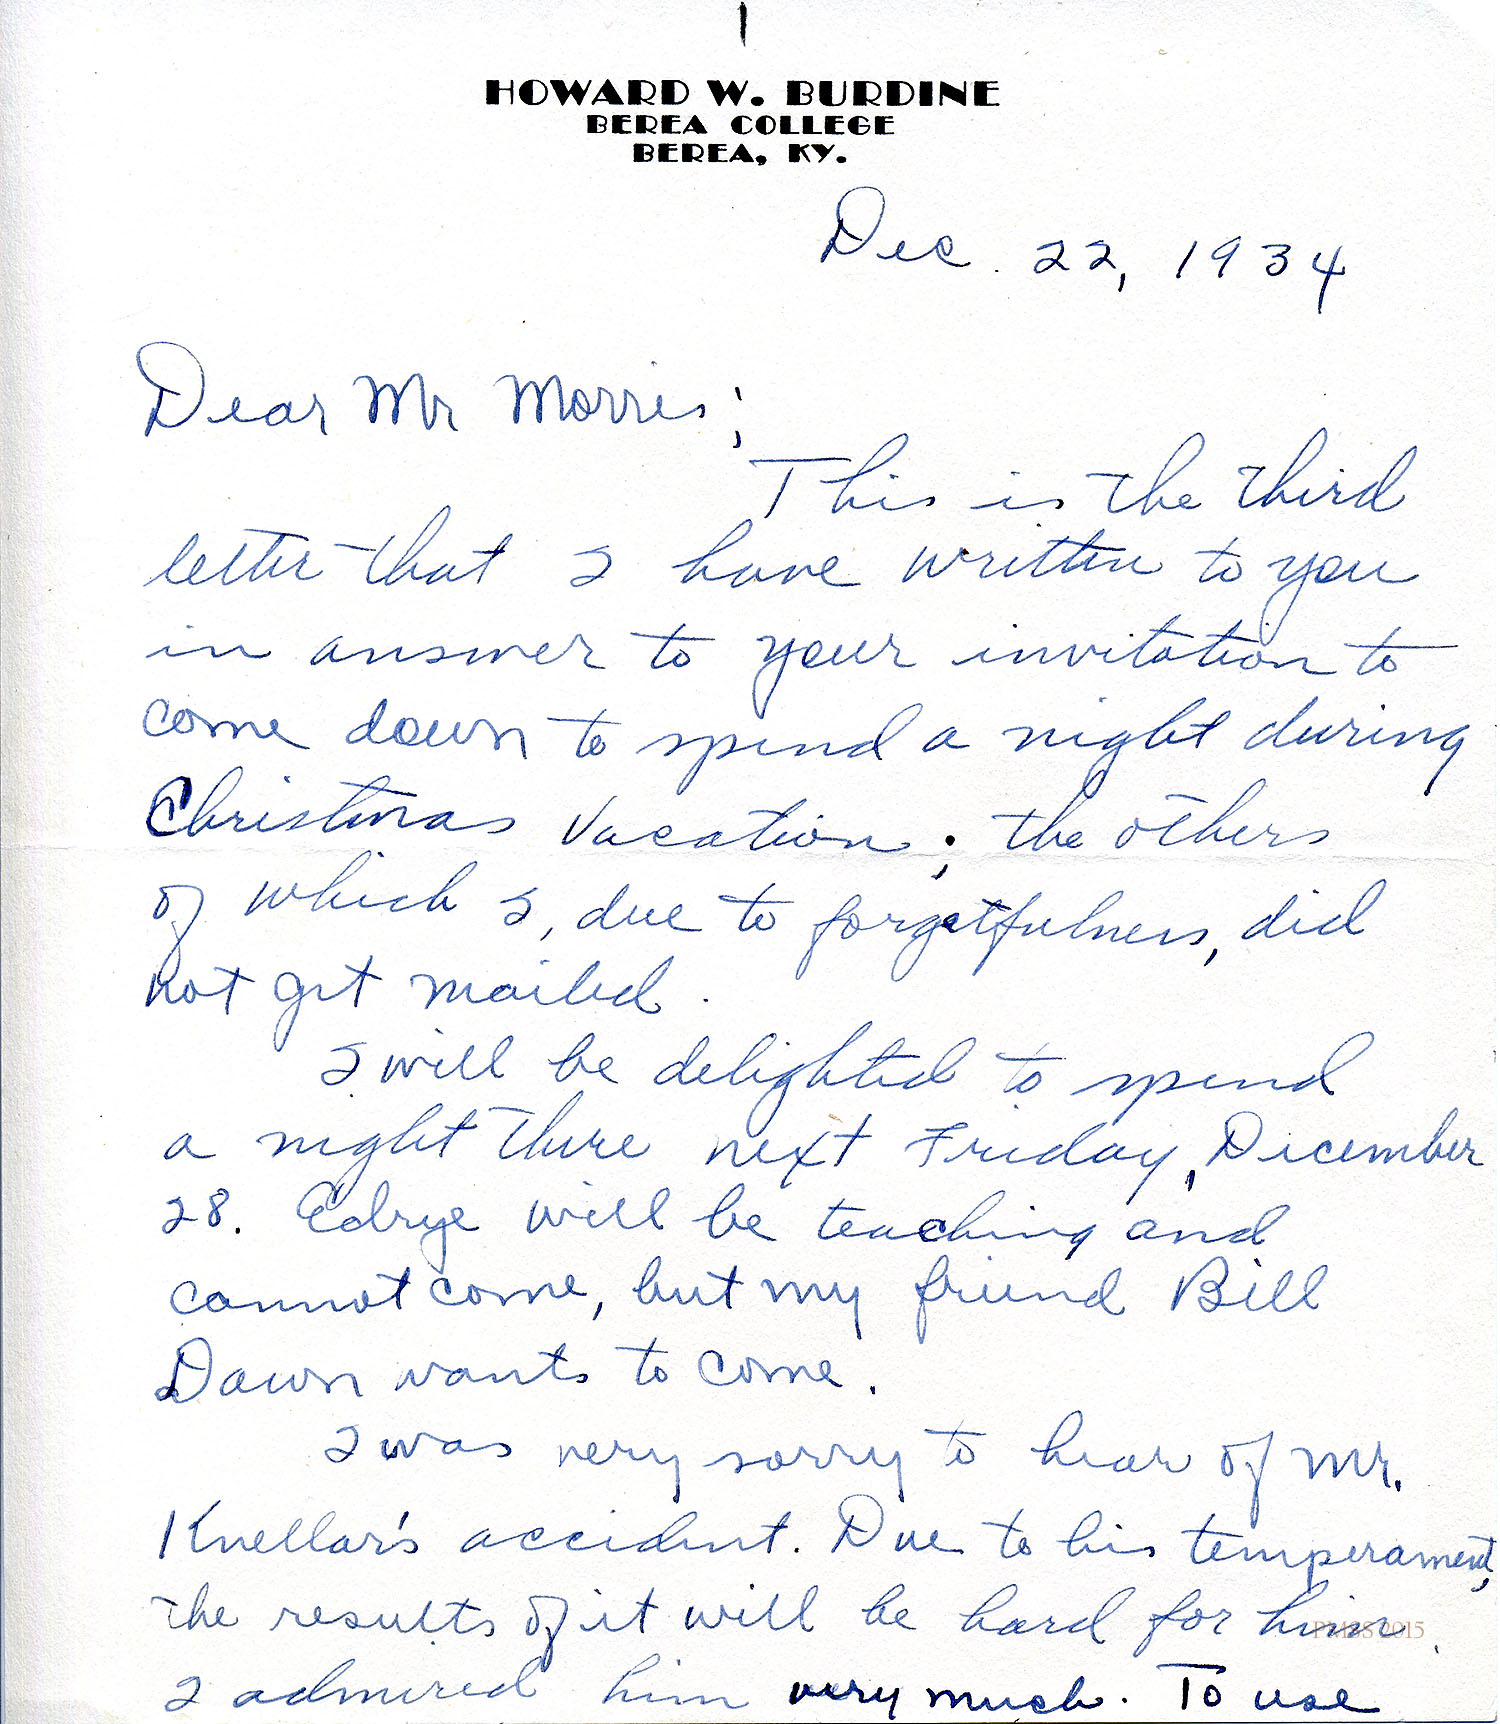 HOWARD W. BURDINE
BEREA COLLEGE
BEREA, KY.
Dec. 22, 1934
Dear Mr Morris;
This is the third
letter that I have written to you
in answer to your invitation to
come down to spend a night during
Christmas vacation; the others
of which I, due to forgetfulness, did
not get mailed.
I will be delighted to spend
a night there next Friday, December
28. Edrye will be teaching and
cannot come, but my friend Bill
Dawn wants to come.
I was very sorry to hear of Mr.
Knellar's accident. Due to his temperament,
the results of it will be hard for him.
PMSS 2015
I admired him very much. To use